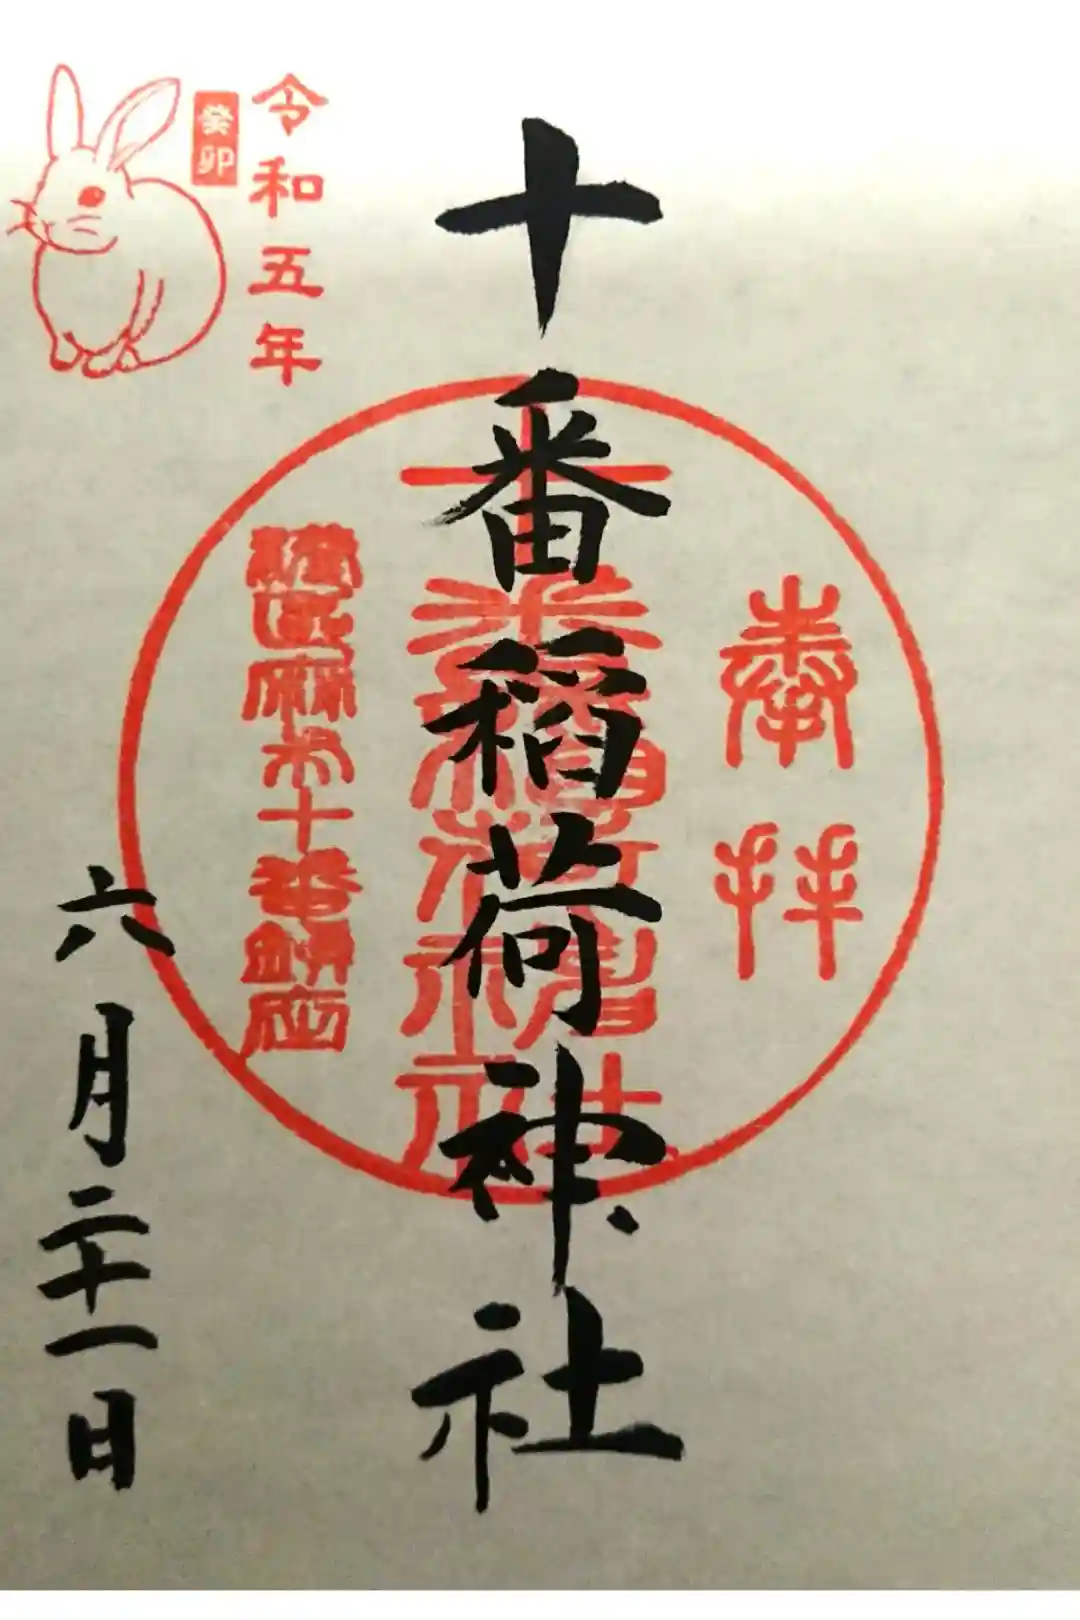 奉拝
十番稲荷神社
十番稲荷神社
港区麻布十番鎮座
令和五年
癸卯
六月二十一日